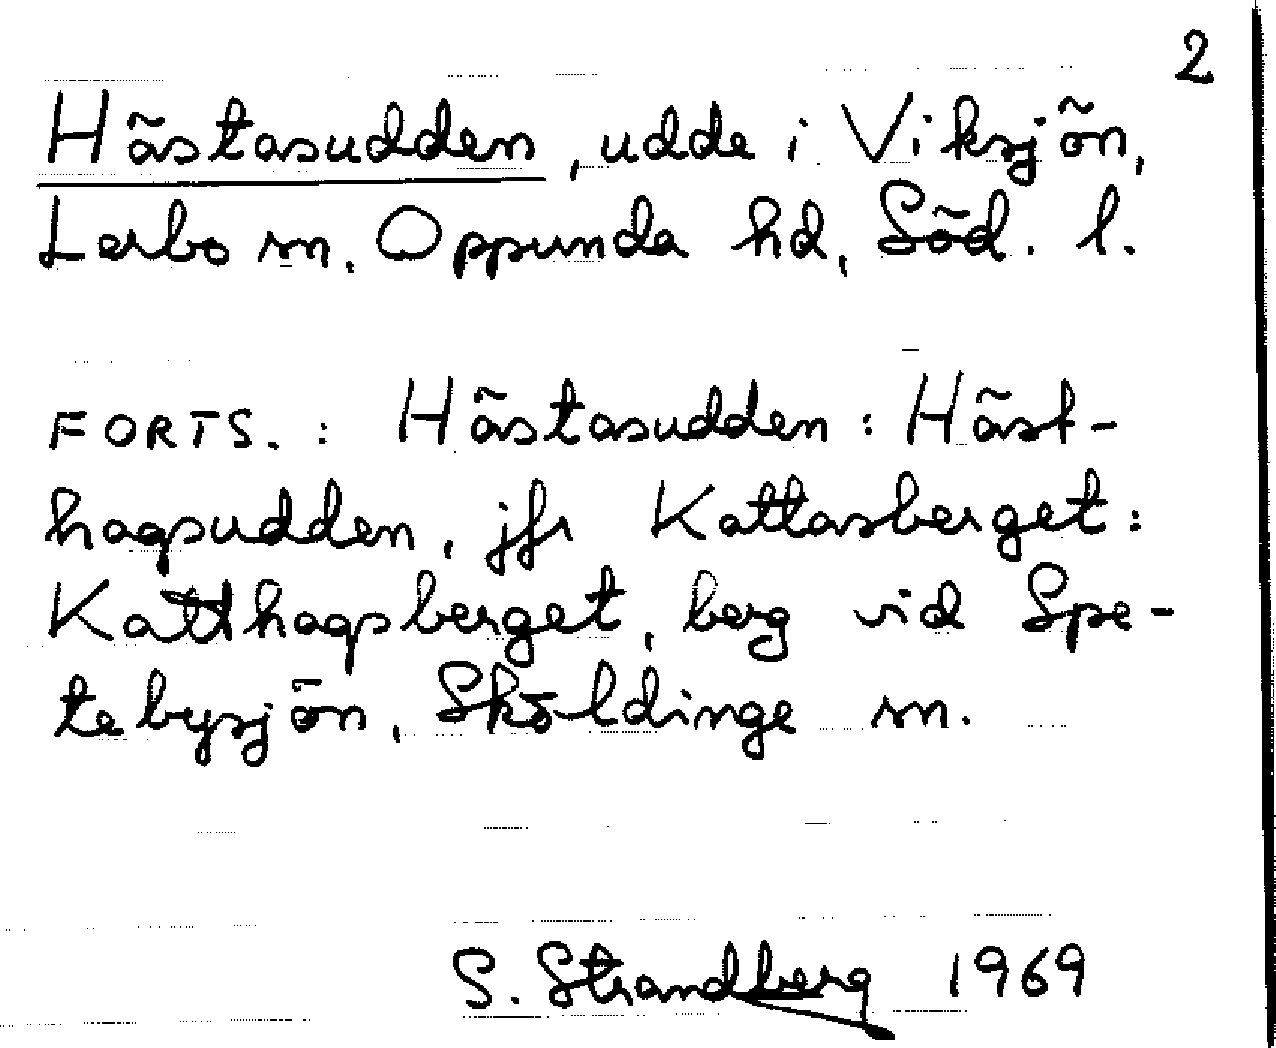 2
Hästasudden, udde i Viksjön,
Lerbo sn, Oppunda hd, Söd. l.
FORTS. : Hästasudden : Häst-
hagsudden, jfr Kattasberget :
Katthagsberget, berg vid Spe-
tebysjön, Sköldinge sn.
S. Strandberg 1969